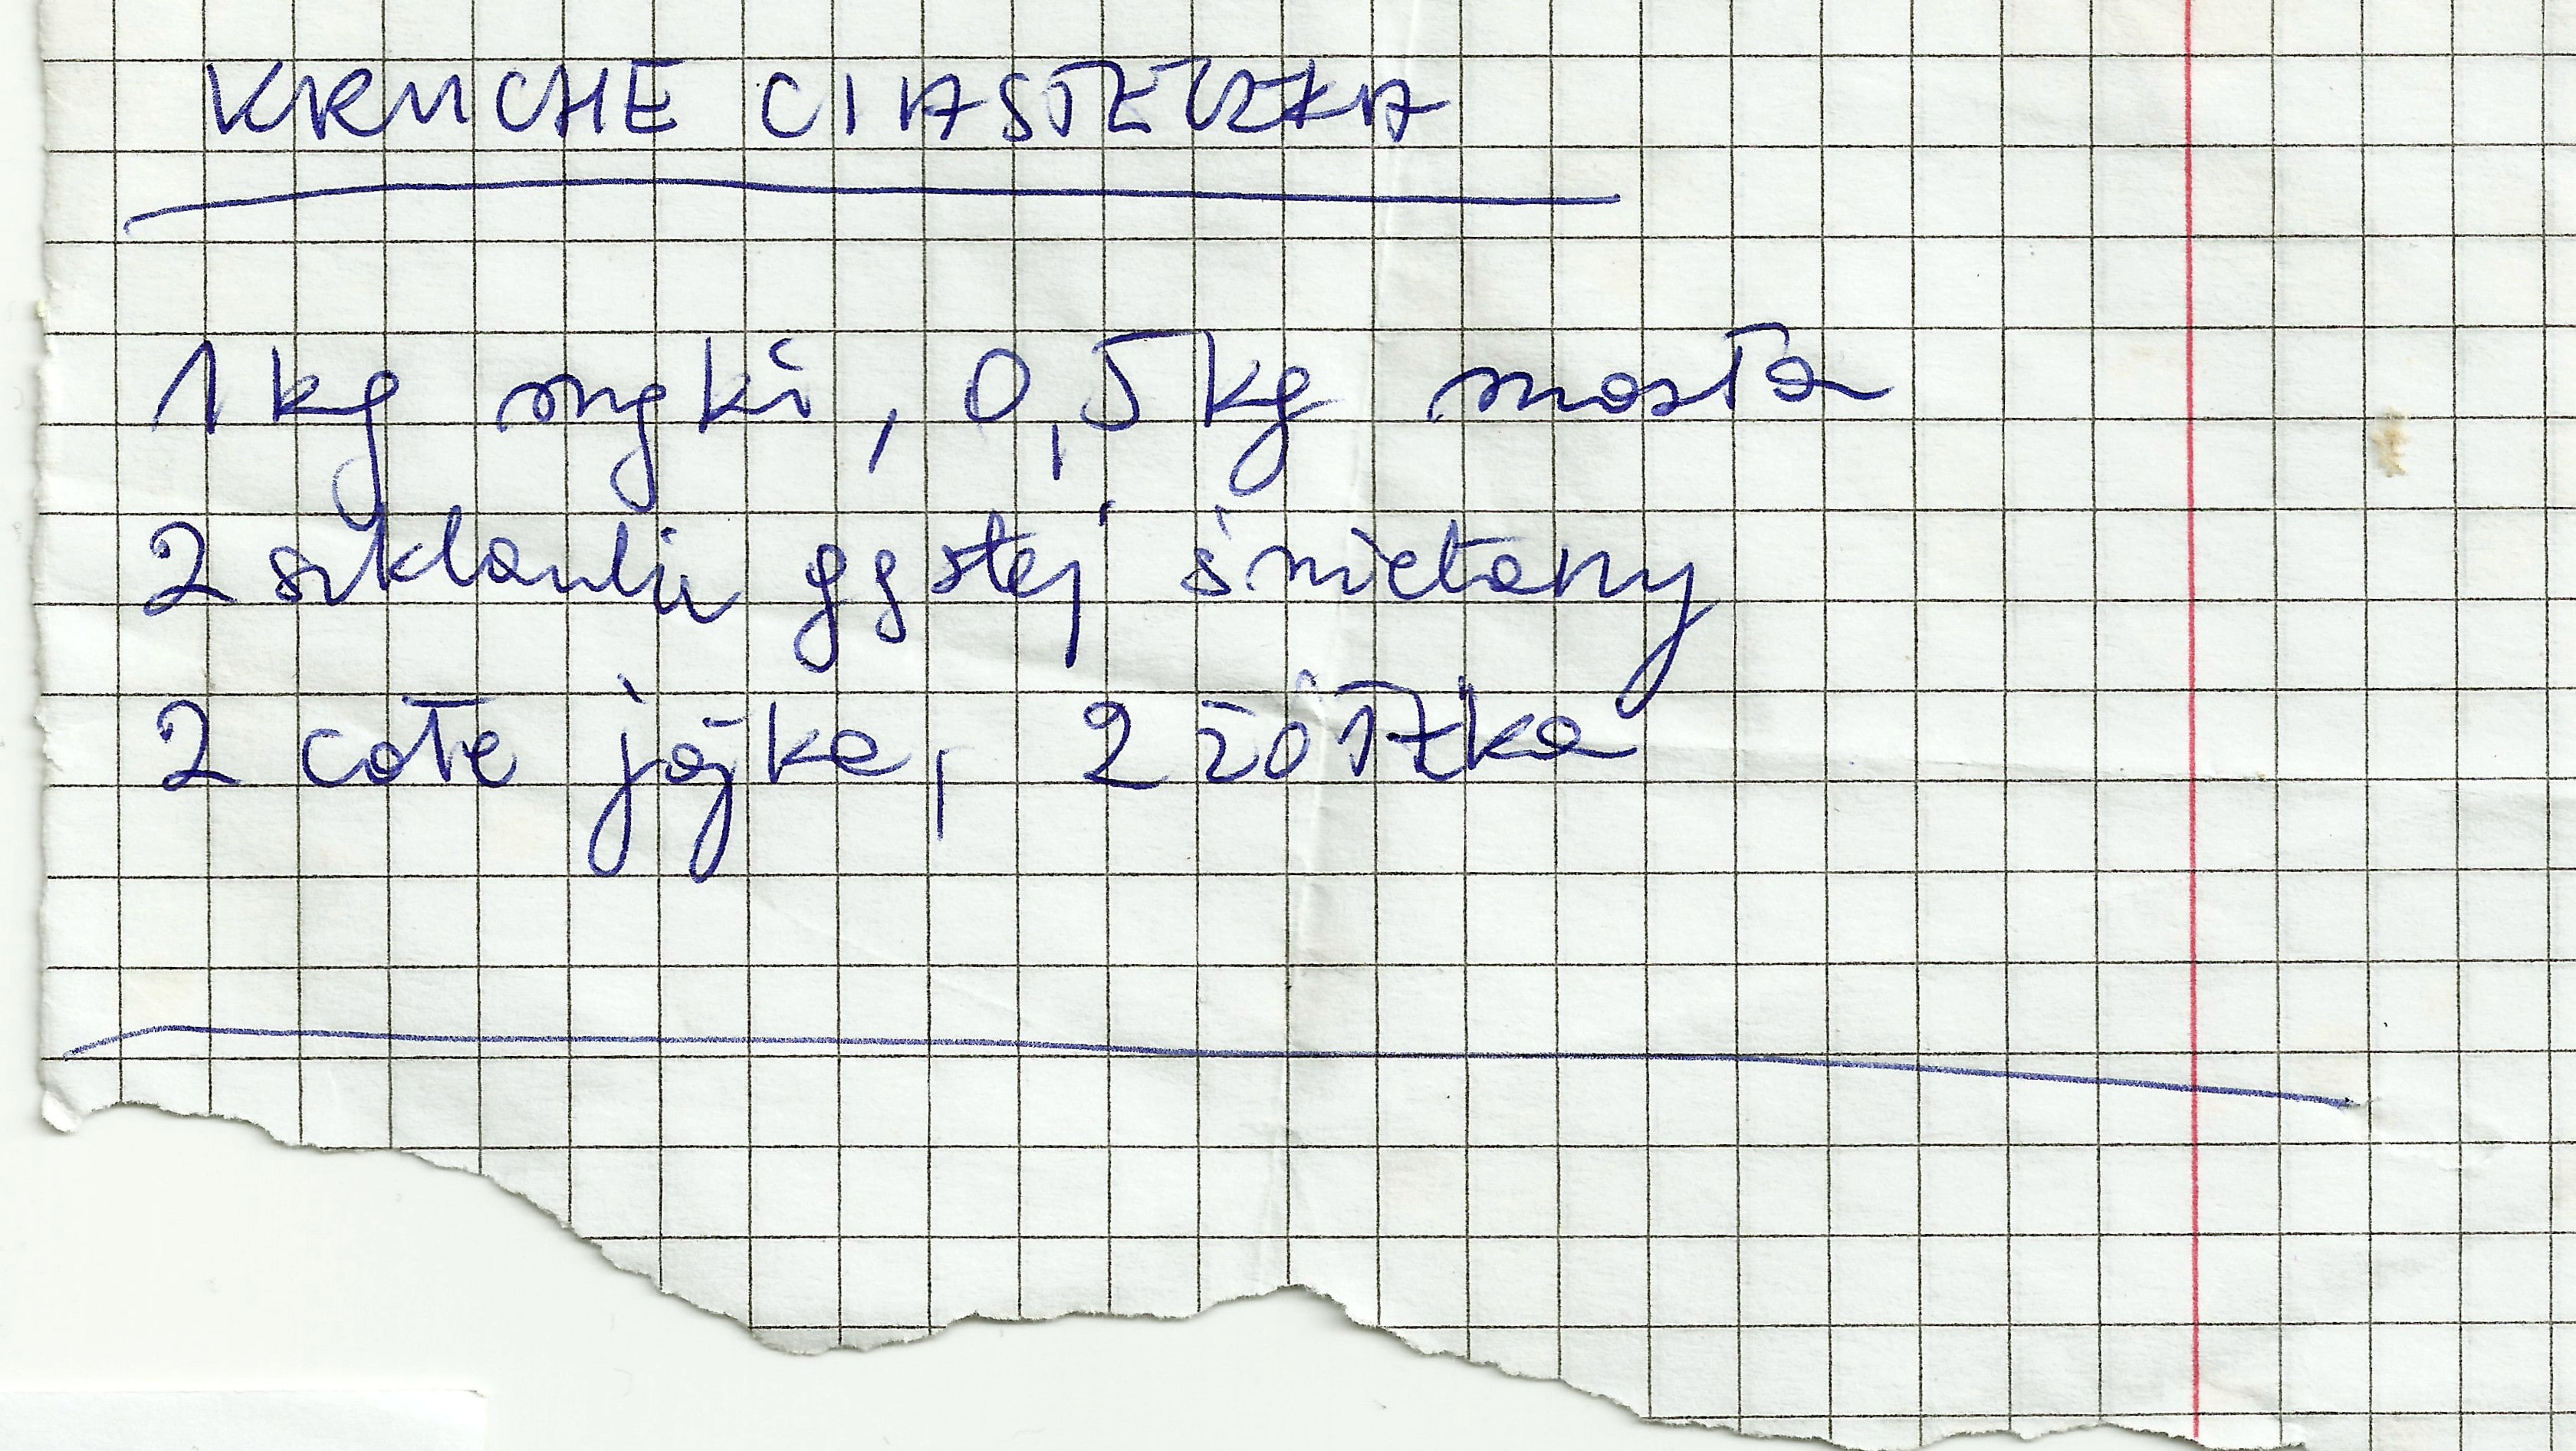 KRUCHE CIASTECZKA
1 kg mąki, 0,5 kg masła
2 szklanki gęstej śmietany
2 całe jajka, 2 żółtka